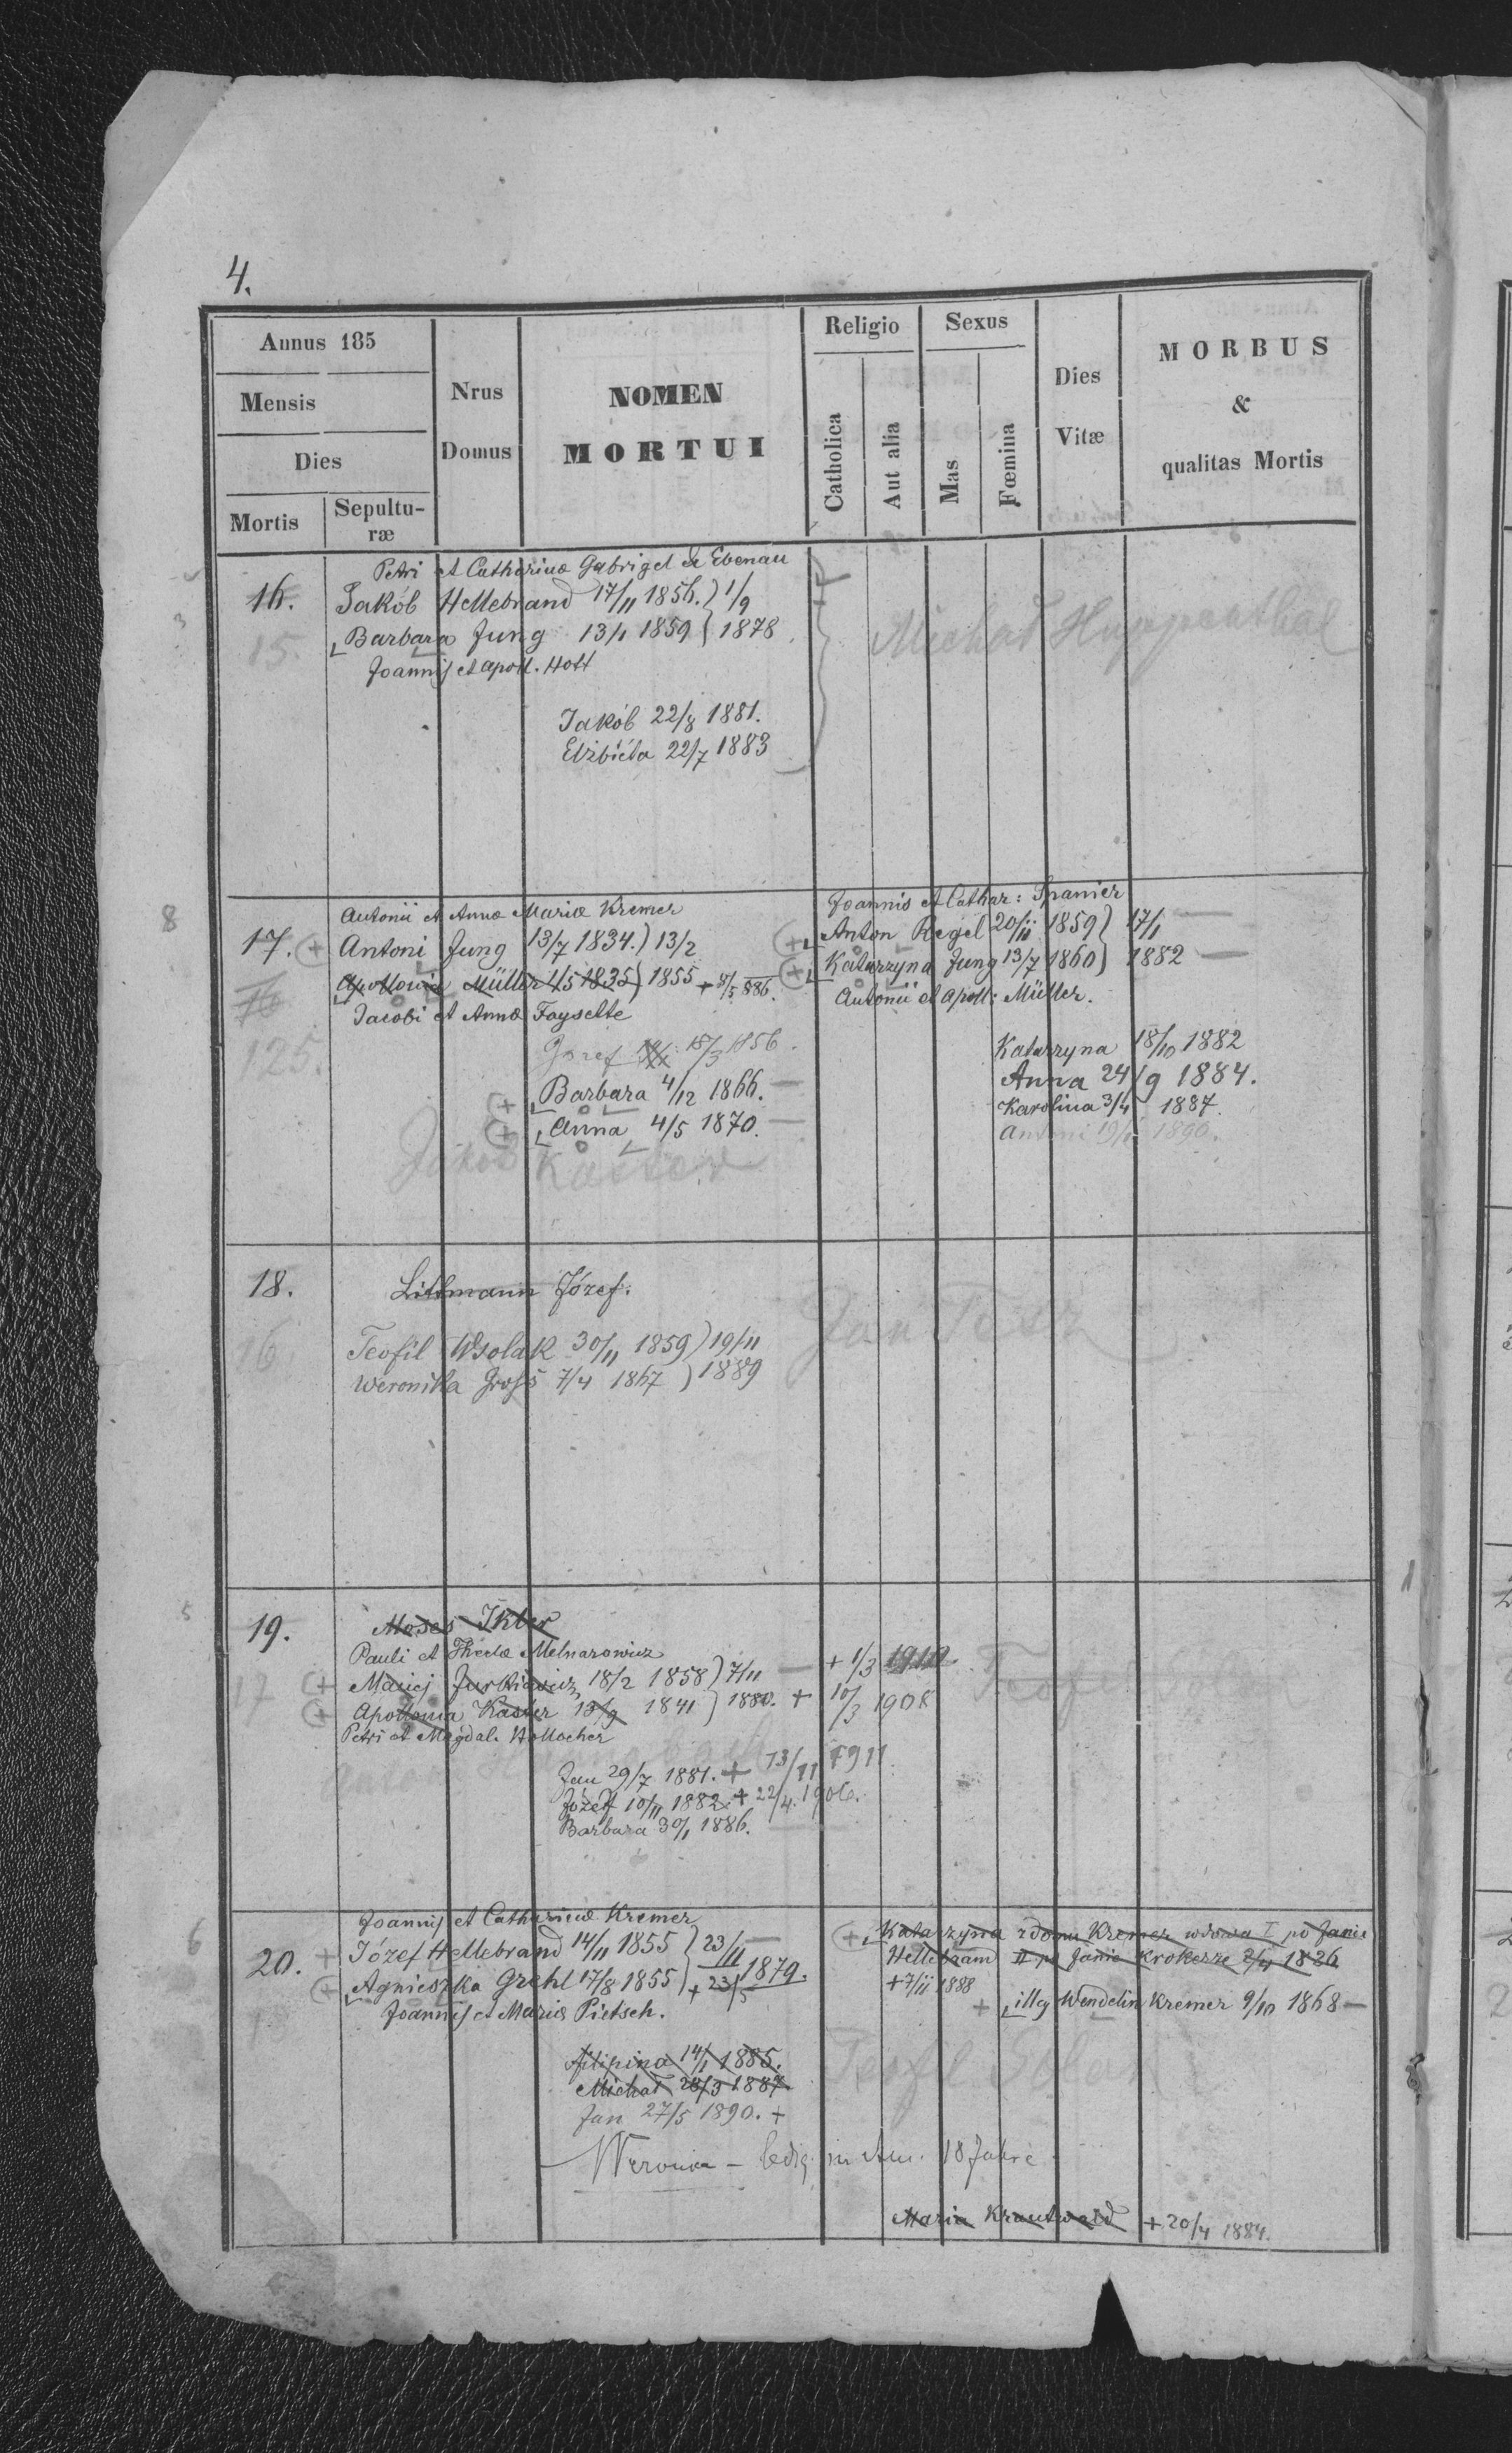 4.
Annus 185
Mensis
Dies
Mortis
Sepultu-
ræ
Nrus
Domus
NOMEN
MORTUI
Religio
Catholica
Aut alia
Sexus
Mas
Fœmina
Dies
Vitæ
MORBUS
&
qualitas Mortis
3
Petri et Catharinæ Gabrigel de Ebenau
16. Jakób Hellebrand 17/11 1856. ) 1/9
15. Barbara Jung 13/1 1859 } 1878
Joannis et Apoll. Hott
Jakób 22/8 1881.
Elżbiéta 22/7 1883
Michał Huppenthal
8
Antonii et Annæ Mariæ Kremer
17. + Antoni Jung 13/7 1834. ) 13/2
Apollonia Müller 1/5 1835 ) 1855 + 8/5 886.
Jacobi et Annæ Faysette
125.
Józef 15/3 1856.
+ Barbara 4/12 1866. —
+ Anna 4/5 1870. —
Jakób Kaster
Joannis et Cathar: Spanier
+ Anton Regel 20/11 1859 } 17/1 —
+ Katarzyna Jung 13/7 1860 ) 1882 —
Antonii et Apoll: Müller.
Katarzyna 18/10 1882
Anna 24/9 1884.
Karolina 3/4 1887.
Antoni 1890.
18. Littmann Józef.
16 Teofil Wsolak 30/11 1859 ) 19/11
Weronika Gross 7/4 1867 ) 1889
Jan
5
19. Moses Ikler
Pauli et Theclæ Melnarowicz
17 + Maciej Jurkiewicz 18/2 1858 ) 7/11 — + 1/3 1910
+ Apollonia Kaster 13/9 1841 } 1880. + 10/3 1908
Petri et Magdal. Hollocher
Anton
Jan 29/7 1881. + 13/11 1911
Józef 10/11 1882. + 22/4. 1906.
Barbara 30/1 1886.
6
Joannis et Catharinæ Kremer
20. + Józef Hellebrand 14/11 1855 } 23/11
+ Agnieszka Grehl 17/8 1855 ) + 23/5 1879.
Joannis et Mariæ Pietsch.
Filipina 14/1 1885.
Michał 28/3 1887.
Jan 27/5 1890. +
Weronica — ledig in Am. 18 Jahre
+ Katarzyna z domu Kremer wdowa I po Janie
Hellebrand II po Janie Krokerze 2/4 1826
+ 7/11 1888
+ illeg Wendelin Kremer 9/10 1868 —
Teofil
Maria Krautwald + 20/4 1884.